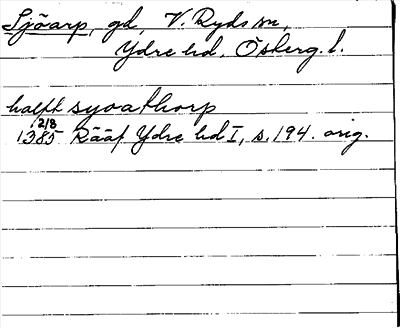 Sjöarp, gd, V. Ryds sn,
Ydre hd, Ösberg. l.
halfft syoathorp
12/8
1385 Rääf Ydre hd I, s. 194. orig.